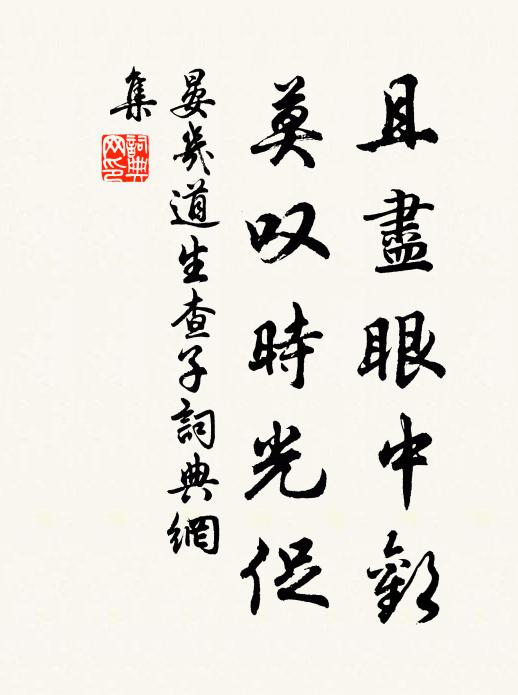 且盡眼中歡
莫叹時光促
晏幾道生查子詞典網
集
詞典
網印